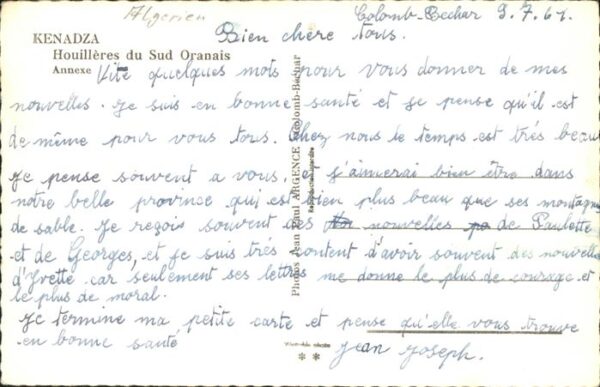 Algerien
Colomb-Bechar 9.7.61.
KENADZA
Bien chère tous.
Houillères du Sud Oranais
Annexe
Vite quelques mots pour vous donner de mes
nouvelles. Je suis en bonne santé et je pense qu'il est
de même pour vous tous. Chez nous le temps est trés beau
Je pense souvent a vous, et j'aimerai bien être dans
notre belle province qui est bien plus beau que ses montagnes
de sable. Je reçois souvent des nouvelles de Paulette
et de Georges, et je suis trés content d'avoir souvent des nouvelles
d'Yvette car seulement ses lettres me donne le plus de courage et
le plus de moral.
Je termine ma petite carte et pense qu'elle vous trouve
en bonne santé
Jean Joseph.
Photos Jean Paul ARGENCE Colomb-Bechar
Reproduction interdite